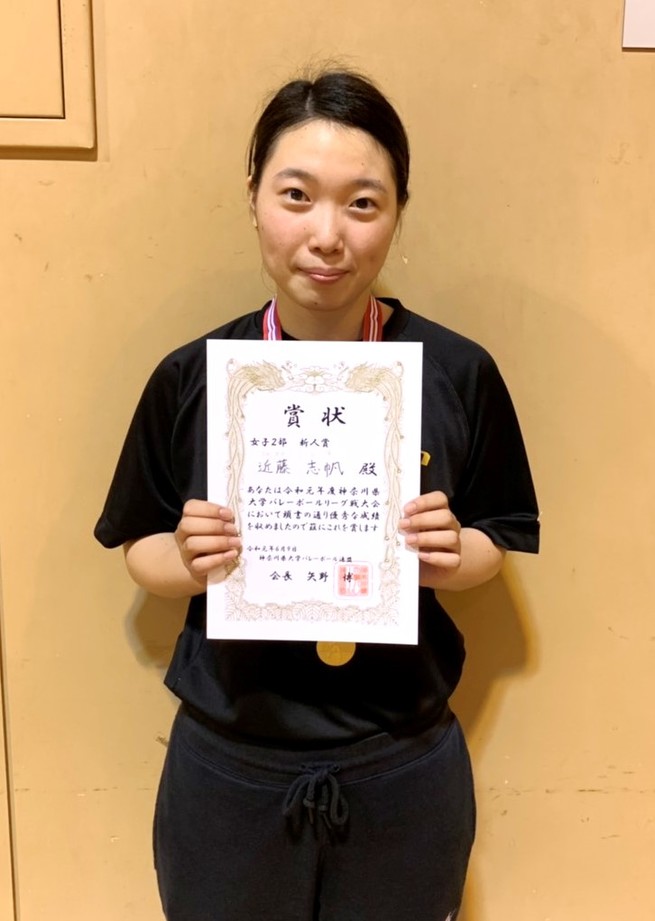 賞状
女子2部 新人賞
近藤 志帆 殿
あなたは令和元年度神奈川県
大学バレーボールリーグ戦大会
において頭書の通り優秀な成績
を収めましたので茲にこれを賞します
令和元年6月9日
神奈川県大学バレーボール連盟
会長 矢野 博